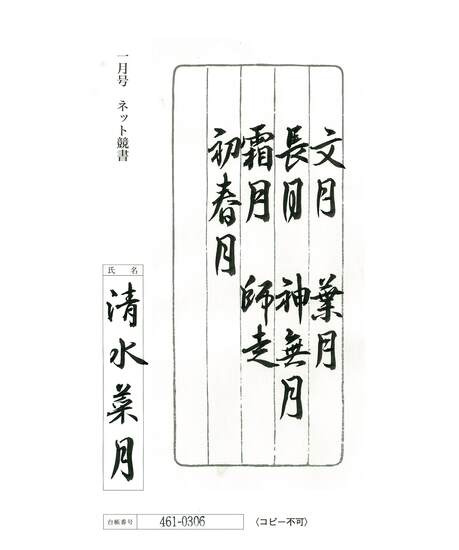 一月号 ネット競書
文月 葉月
長月 神無月
霜月 師走
初春月
氏名
清水菜月
台帳番号 461-0306 〈コピー不可〉